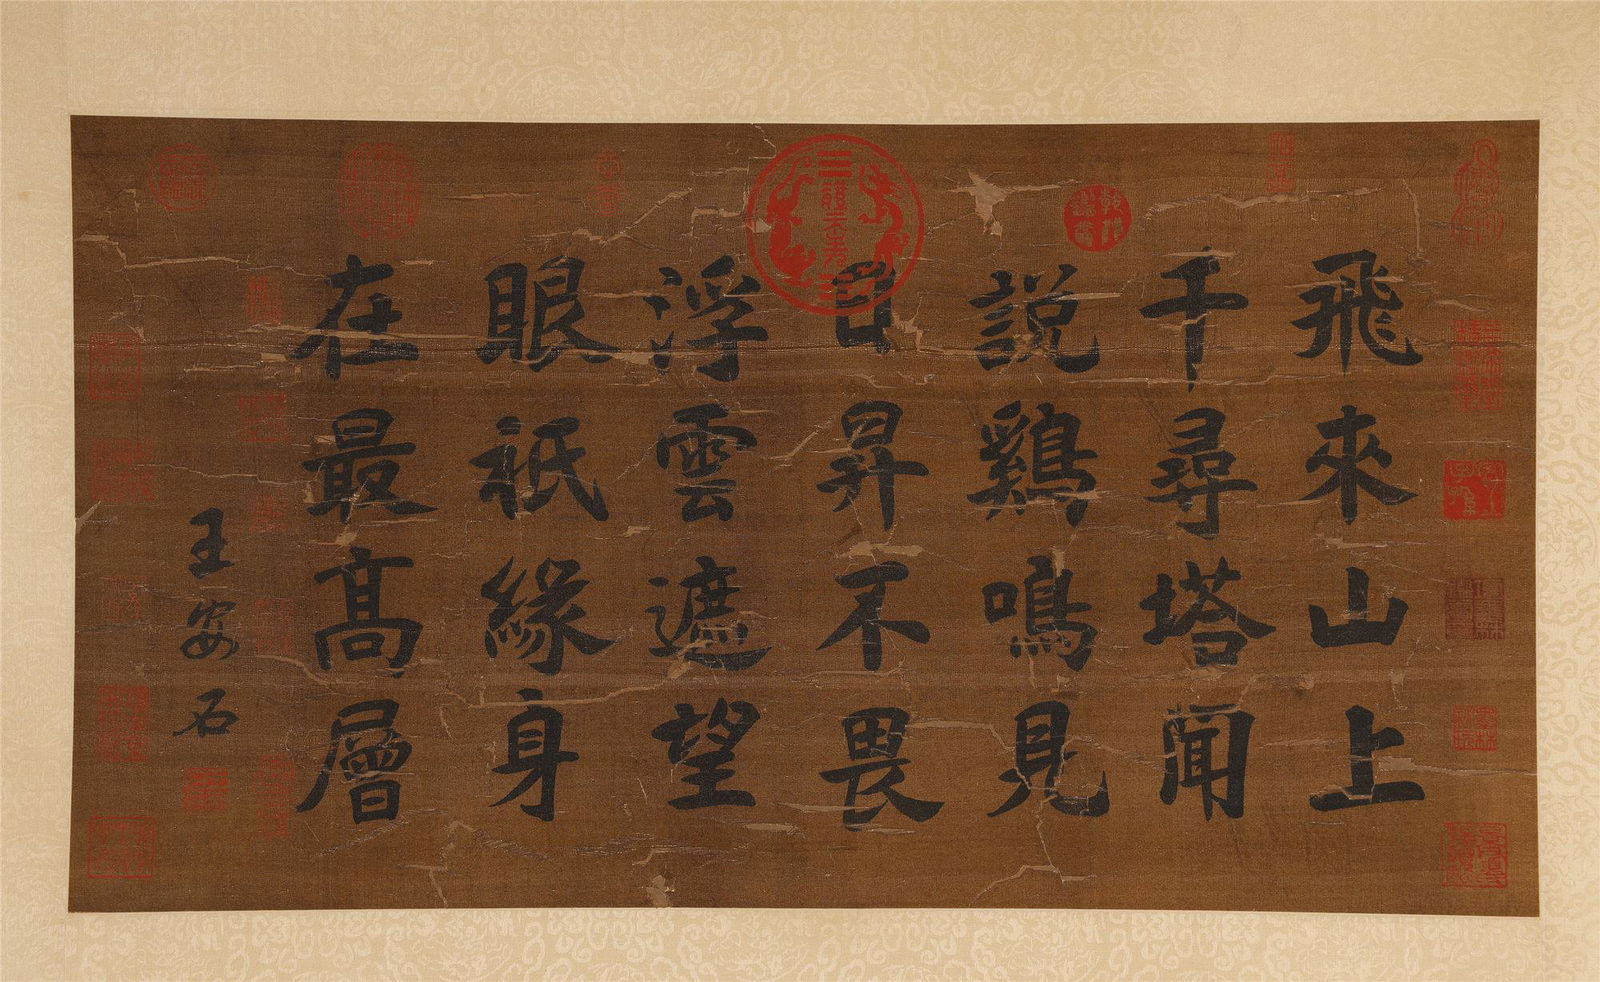 飛來山上
千尋塔聞
說鷄鳴見
日昇不畏
浮雲遮望
眼祇緣身
在最高層
王安石